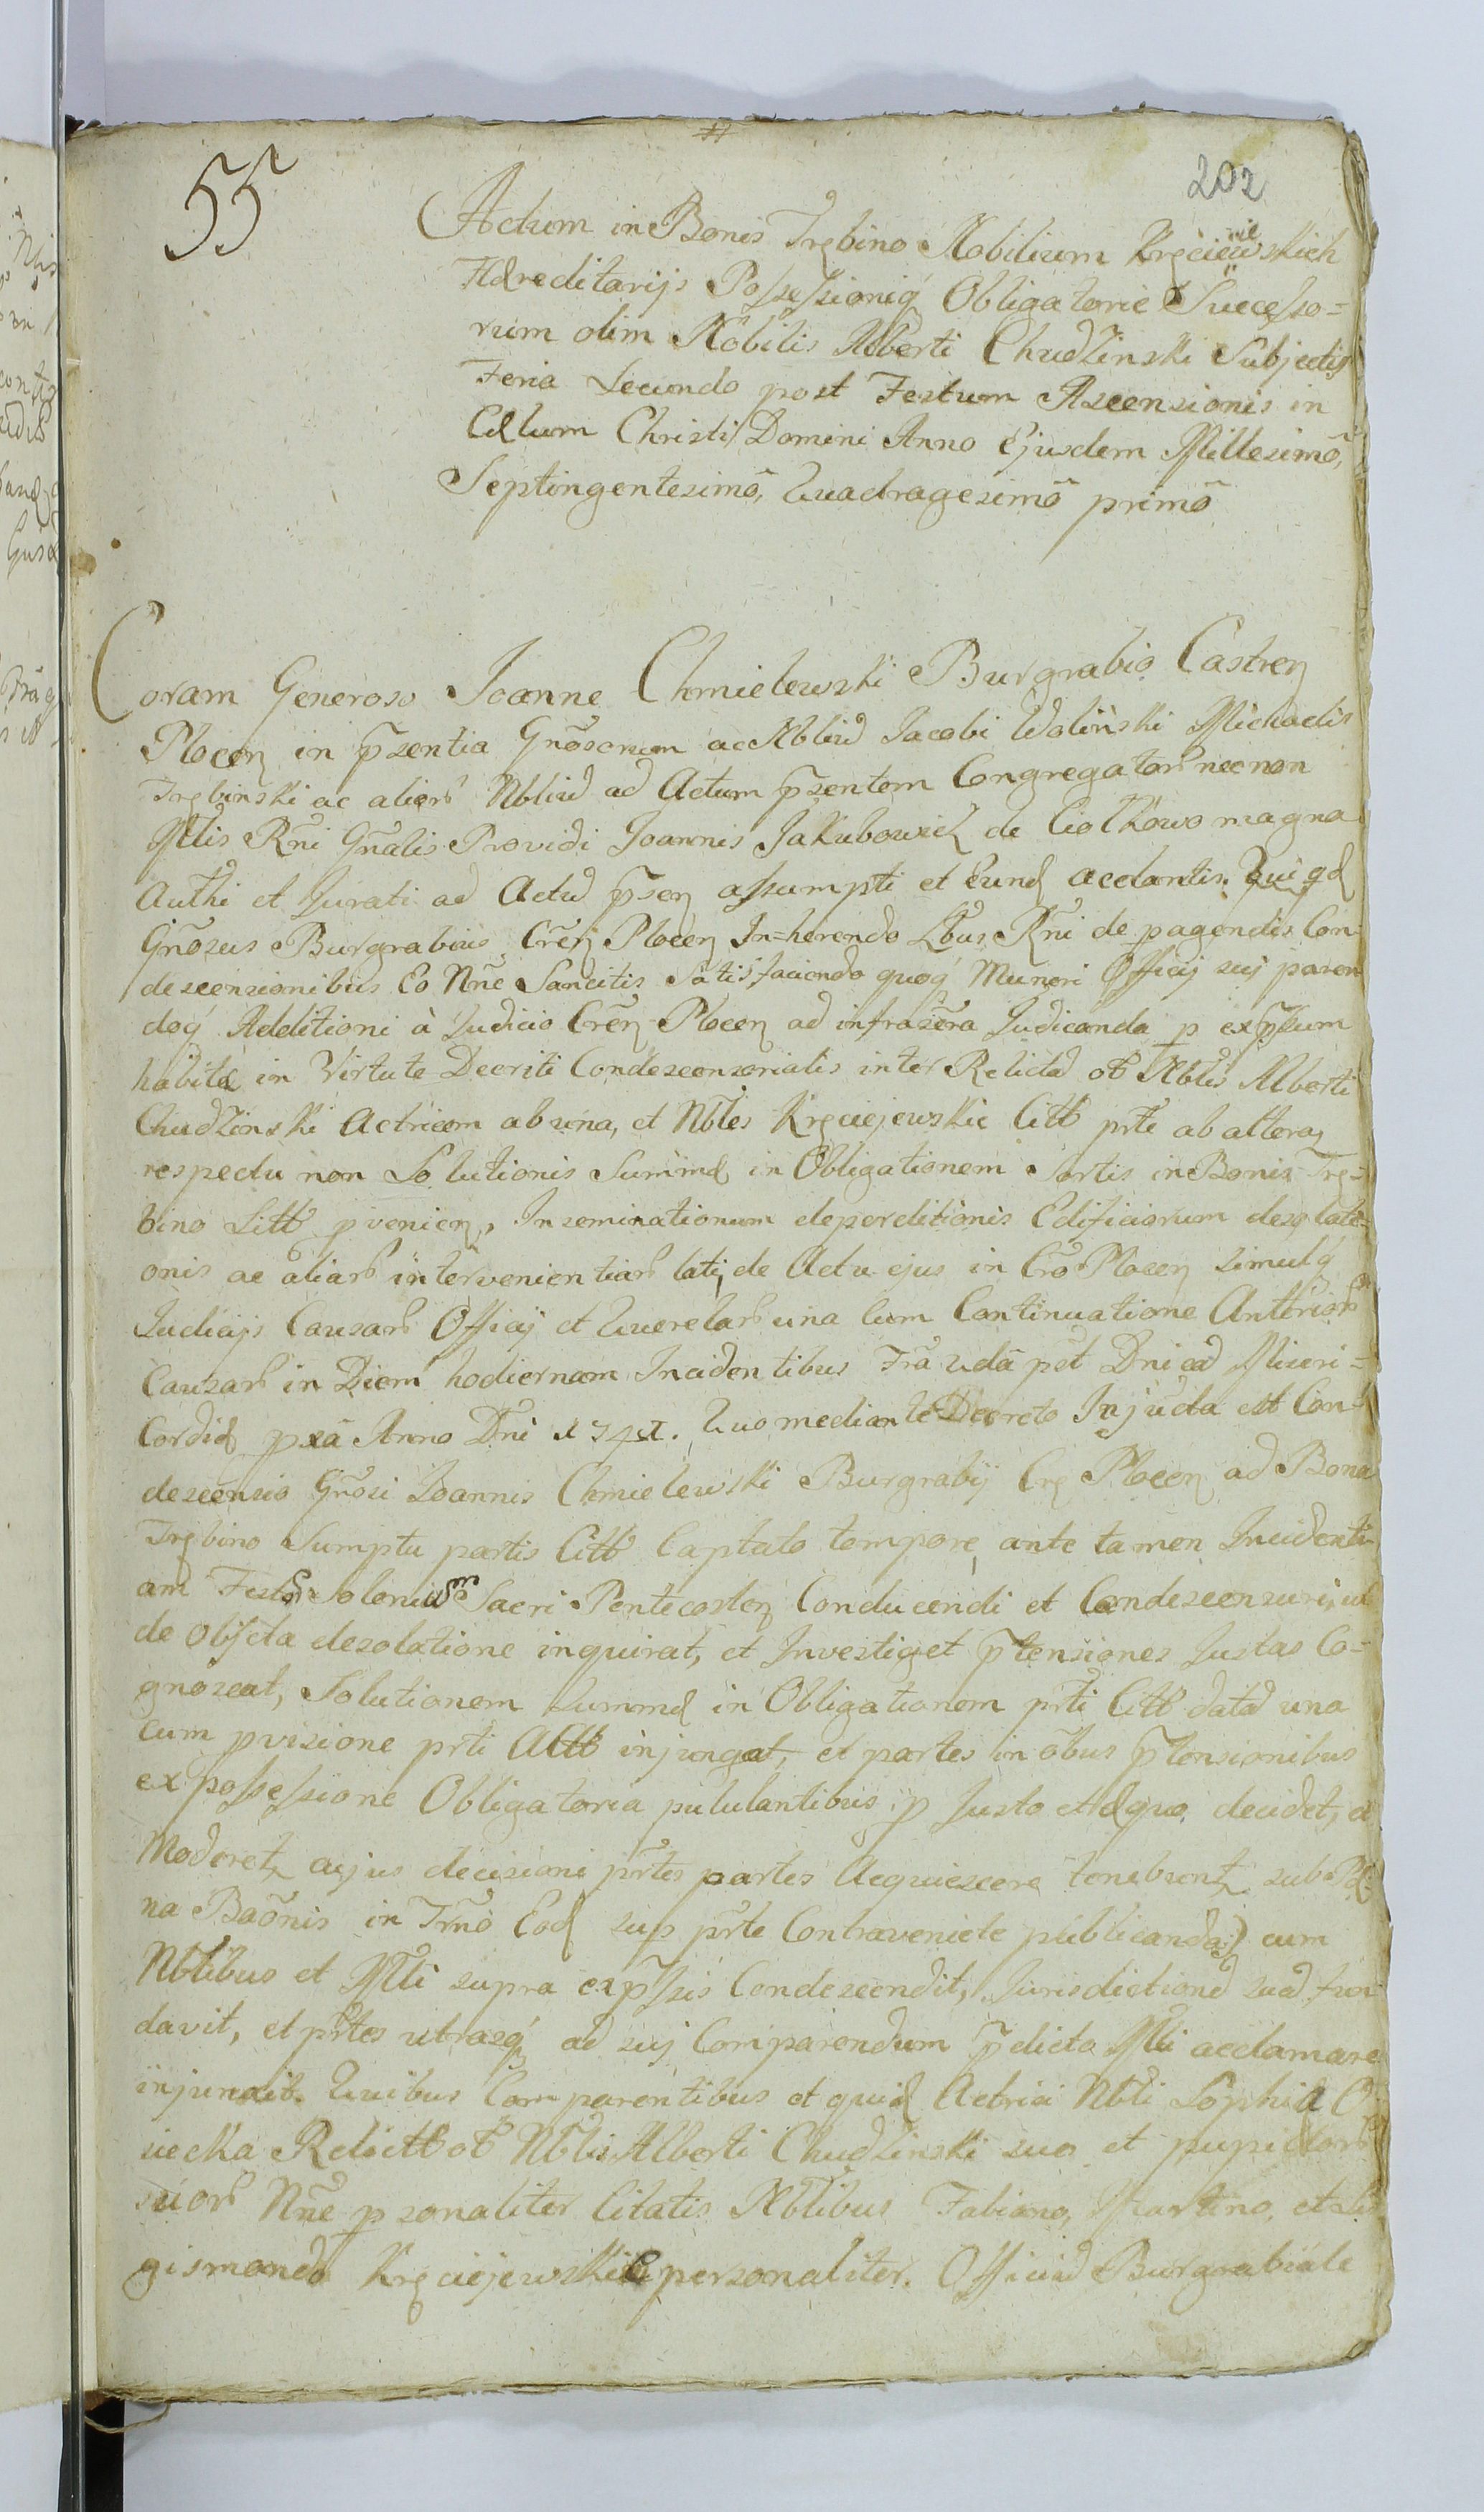 55
202
Actum in Bonis Trębino Nobilium Kręciewskich
Hæreditarijs Possessioniq́ Obligatorie Successo=
rum olim Nobilis Alberti Chudzinski Subjectis
Feria Secunda post Festum Ascensionis in
Cælum Christi Domini Anno Ejusdem Millesimō,
Septingentesimō, Quadragesimō primō
Coram Generoso Joanne Chmielewski Burgrabio Castreņ
Ploceņ in p̄zentia Gnōsorum ac Nbliū Jacobi Woliński Michaelis
Trębinski ac alior Nbliū ad Actum p̄zentem Congregator necnon
Mlis Rn̄i Gn̄alis Providi Joannis Jakubowicz de Ciołkowo magna
Authi et Jurati ad Actū p̄zeņ assumpti et Eund acclantis. Qui qd
Gnōsus Burgrabius Crēņ Ploceņ In=herendo Lbus Rn̄i de pagendis Con
descensionibus Eo Nn̄e Sancitis Satisfaciendo quoq́ Muneri Officij sui paren
doq́ Additioni à Judicio Crēņ Ploceņ ad infrazēra Judicanda p exp̄ssum
habitæ in Virtute Decreti Condescensorialis inter Relictā ol Nblis Alberti
Chudzinski Actricem ab una, et Nbles Kręciejewskie Citt prte ab altera
respectu non Solutionis Summæ in Obligationem Sortis in Bonis Trę=
bino Sitt pvenieņ, Inseminationum deperditionis Edificiorum desolati=
onis ac aliar intervenientiar lati, de Actu ejus in Crō Ploceņ simulq́
Judicijs Causar Officij et Querelar una cum Continuatione Anterior
Causar in Diem hodiernam Incidentibus Frā 2dā pst Dnicā Miseri=
Cordiæ pxā Anno Dni 1741. Quo mediante Decreto Injucta est Con
descensio Gnōsi Joannis Chmielewski Burgrabij Crę Ploceņ ad Bona
Trębino Sumptu partis Citt Captato tempore, ante tamen Incidenti
am Festor Solenium Sacri Pentecosteņ Conducendi et Condescensuri, ut
de objcta desolatione inquirat, et Investiget p̄tensiones Justas Co=
gnoscat, Solutionem Summæ in Obligationem prti Citt datæ una
cum pvisione prti Actt injungat, et partes in ōbus p̄tensionibus
ex possessione Obligatoria pululantibus p Justo et Æquo, decidet, et
Moderet, cujus decisioni prtes partes Acquiescere tenebunt, sub Pæ
na Baōnis in Trn̄o Eod sup prte Contraveniete publicanda) cum
Nblibus et Mli supra exp̄ssis Condescendit, Jurisdictionē suā fun
davit, et prtes utrasq́ ad suj Comparendum p̄dicto Mli acclamare
injunxit. Quibus Comparentibus et quid Actrici Nbli Sophia O
siecka Relictt ol Nblis Alberti Chudzinski suo et pupillor
suor Nn̄e psonaliter Citatis Nblibus Fabiano, Martino, et Si
gismondo Kręciejewskie personaliter. Officiū Burgrabiale